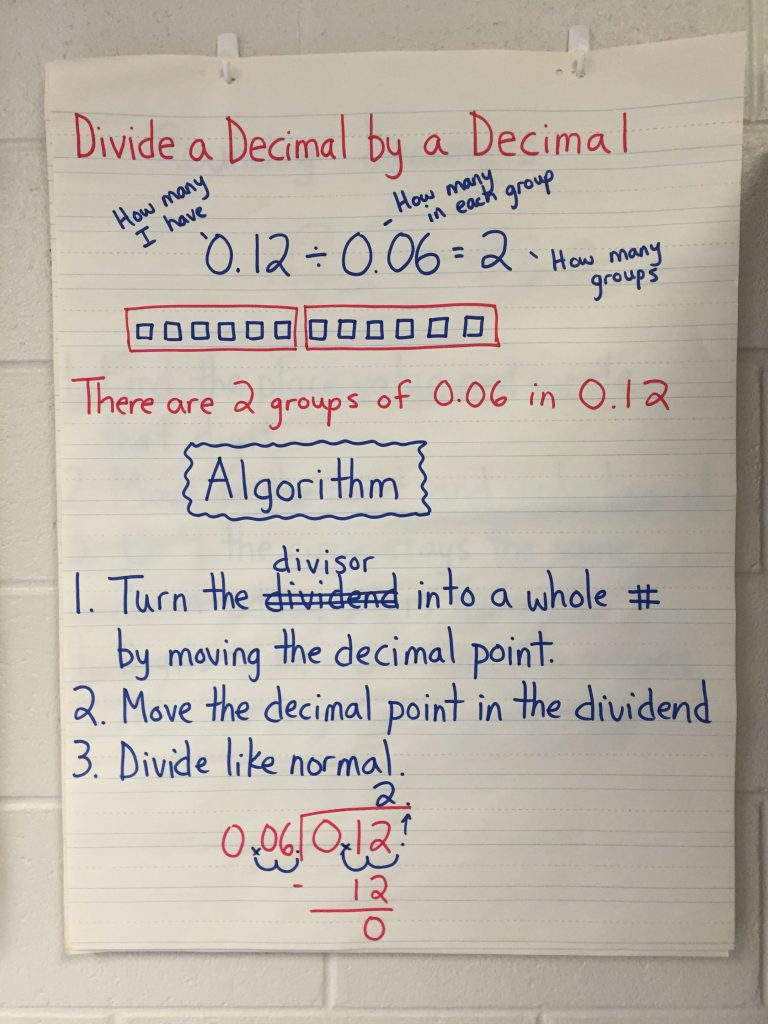 Divide a Decimal by a Decimal
How many
I have
How many
in each group
0.12 ÷ 0.06 = 2
How many
groups
There are 2 groups of 0.06 in 0.12
Algorithm
divisor
1. Turn the dividend into a whole #
by moving the decimal point.
2. Move the decimal point in the dividend
3. Divide like normal.
2.
0.06. 0.12.
- 12
0